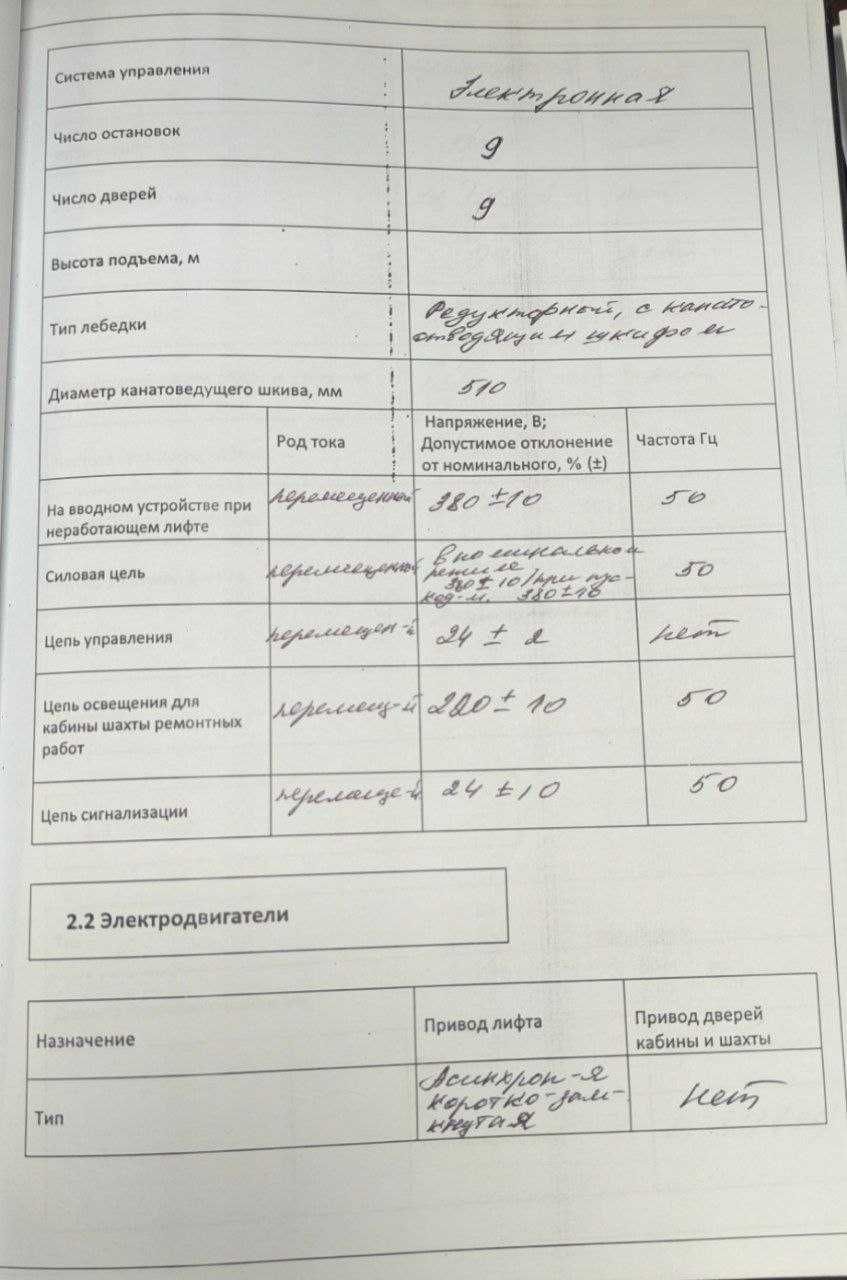 Система управления
Электронная
Число остановок
9
Число дверей
9
Высота подъема, м
Тип лебедки
Редукторный, с канато-
отводящим шкифом
Диаметр канатоведущего шкива, мм
510
Род тока
Напряжение, В;
Допустимое отклонение
от номинального, % (±)
Частота Гц
На вводном устройстве при
неработающем лифте
перемещенный
380 ±10
50
Силовая цель
перемещенный
в номинальном
режиме
380 ± 10/при пус-
380 ± 10
50
Цепь управления
перемещен-й
24 ± 2
нет
Цепь освещения для
кабины шахты ремонтных
работ
перемещ-й
220 ± 10
50
Цепь сигнализации
перемеще-й
24 ± 10
50
2.2 Электродвигатели
Назначение
Привод лифта
Привод дверей
кабины и шахты
Тип
Асинхрон-я
коротко-зам-
кнутая
нет